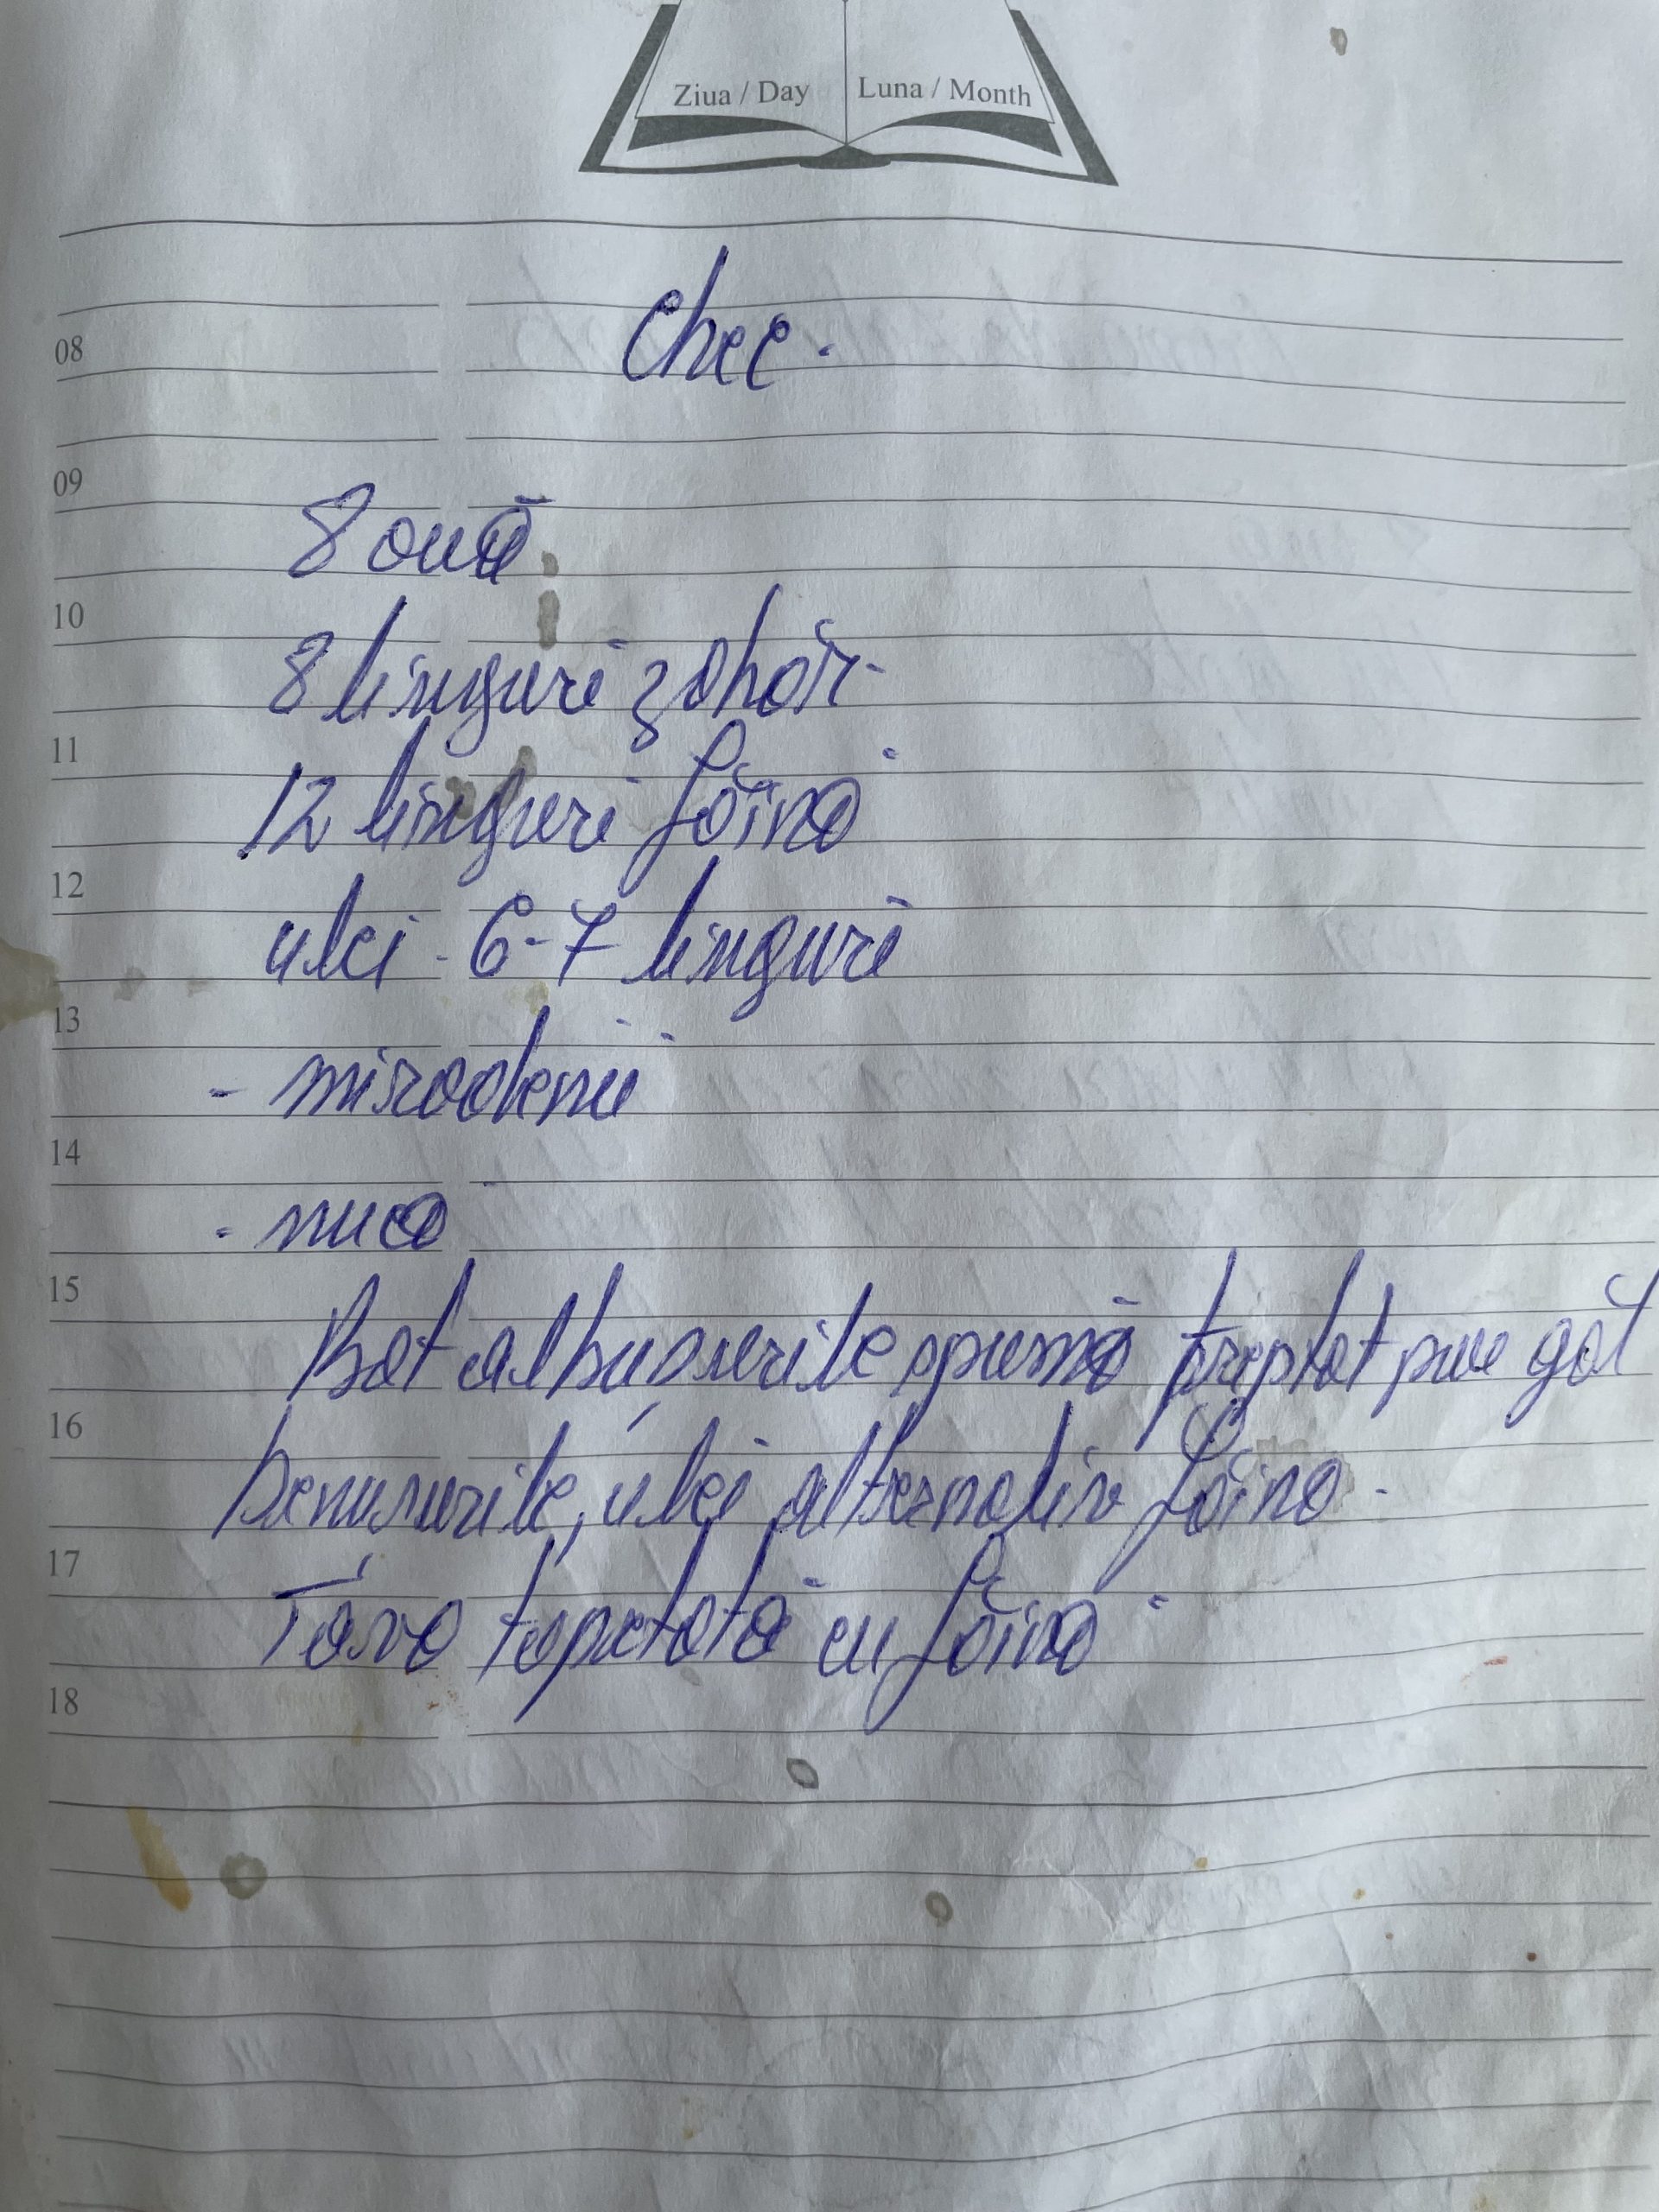 Ziua / Day Luna / Month
Chec.
08
09
8 ouă
10
8 linguri zahăr
11
12 linguri făină
12
ulei - 6-7 linguri
13
- mirodenii
14
- nucă
15
Bat albușurile spumă treptat pun găl
16
benușurile, ulei alternativ făina.
17
Tava tapetată cu făină
18